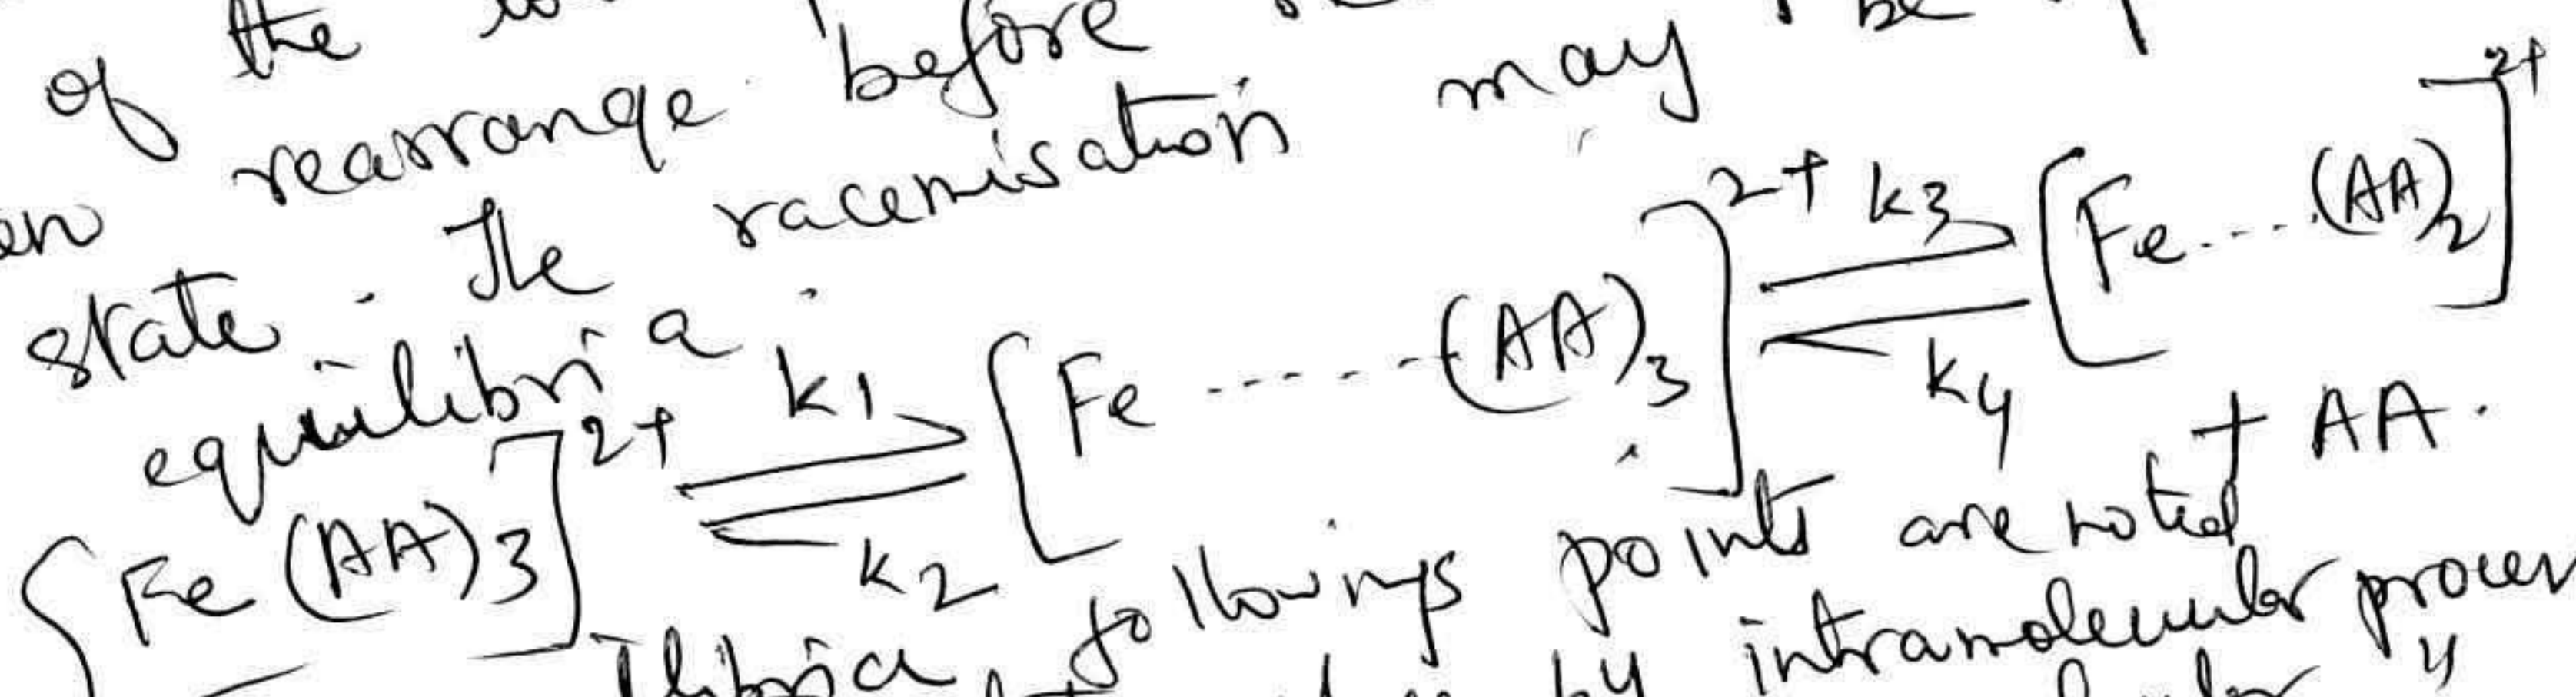 of the
rearrange before
state. The racemisation may be
equilibria.
[Fe(AA)3]2+ k1 ⇌ k2 [Fe ------(AA)3]2+ k3 ⇌ k4 [Fe....(AA)2]2+ + AA.
followings points are noted
by intramolecular